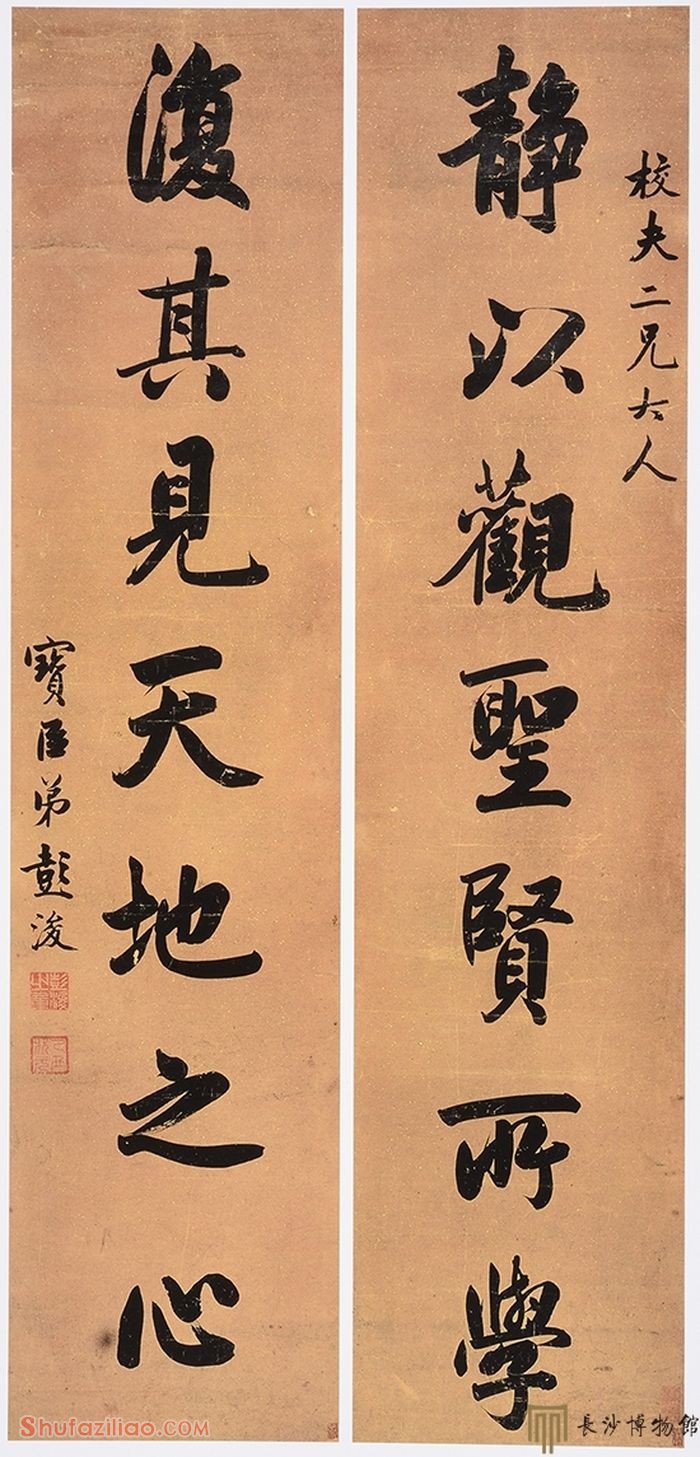 校夫二兄大人
静以觀聖賢所學
復其見天地之心
寶臣弟彭浚
Shufaziliao.COM
長沙博物館